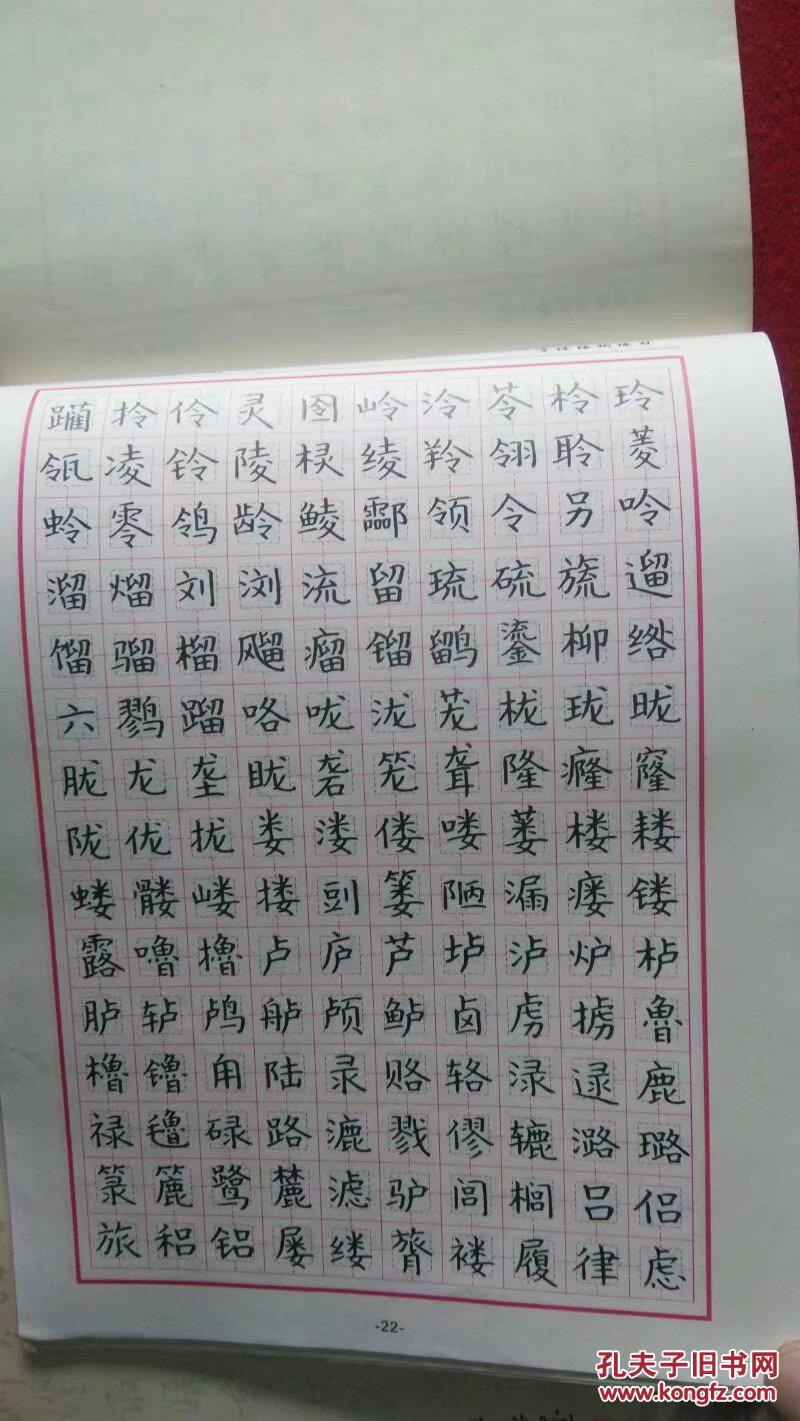 躏拎伶灵囹岭泠苓柃玲
瓴凌铃陵棂绫羚翎聆菱
蛉零鸰龄鲮酃领令另呤
溜熘刘浏流留琉硫旒遛
馏骝榴飗瘤镏鹠鎏柳绺
六鹨蹓咯咙泷茏栊珑昽
胧龙垄眬砻笼聋隆癃窿
陇垅拢娄溇偻喽蒌楼耧
蝼髅嵝搂剅篓陋漏瘘镂
露噜撸卢庐芦垆泸炉栌
胪轳鸬舻颅鲈卤虏掳鲁
橹镥甪陆录赂辂渌逯鹿
禄氇碌路漉戮僇辘潞璐
箓簏鹭麓滤驴闾榈吕侣
旅稆铝屡缕膂褛履律虑
-22-
孔夫子旧书网
www.kongfz.com